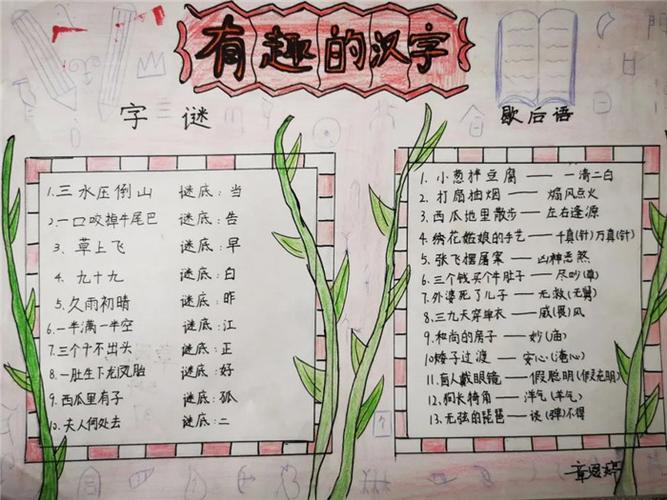 有趣的汉字
字谜
1.三水压倒山 谜底:当
2.一口咬掉牛尾巴 谜底:告
3.草上飞 谜底:早
4.九十九 谜底:白
5.久雨初晴 谜底:昨
6.一半满一半空 谜底:江
7.三个干不出头 谜底:正
8.一肚生下龙凤胎 谜底:好
9.西瓜里有子 谜底:孤
10.夫人何处去 谜底:二
歇后语
1.小葱拌豆腐——一清二白
2.打扇抽烟——煽风点火
3.西瓜地里散步——左右逢源
4.绣花姑娘的手艺——千真(针)万真(针)
5.张飞摆屠案——凶神恶煞
6.三个钱买个牛肚子——尽吵(草)
7.外婆死了儿子——无救(无舅)
8.三九天穿单衣——威(畏)风
9.和尚的房子——妙(庙)
10矮子过渡——安心(淹心)
11.盲人戴眼镜——假聪明(假充明)
12.狗长犄角——洋气(羊气)
13.无弦的琵琶——谈(弹)不得